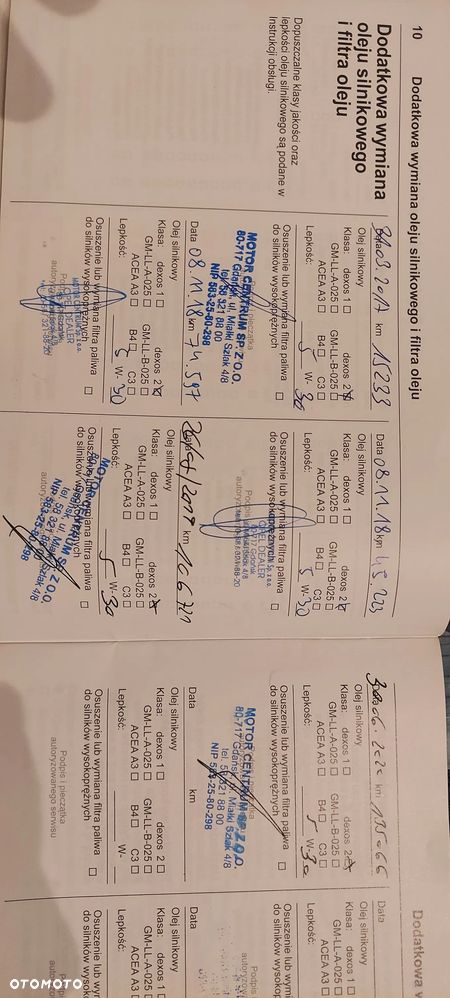 10 Dodatkowa wymiana oleju silnikowego i filtra oleju
Dodatkowa wymiana
oleju silnikowego
i filtra oleju
Dopuszczalne klasy jakości oraz
lepkości oleju silnikowego są podane w
Instrukcji obsługi.
03.2017 km 15233
Olej silnikowy
Klasa: dexos 1 □ dexos 2
GM-LL-A-025 □ GM-LL-B-025 □
ACEA A3 □ B4 □ C3 □
Lepkość: 5 W- 30
Osuszenie lub wymiana filtra paliwa
do silników wysokoprężnych □
MOTOR CENTRUM SP. Z O.O.
80-717 Gdańsk, ul. Miałki Szlak 4/8
tel. 58 321 88 00
NIP 583-25-80-298
Data 08.11.18 km 74.597
Olej silnikowy
Klasa: dexos 1 □ dexos 2
GM-LL-A-025 □ GM-LL-B-025 □
ACEA A3 □ B4 □ C3 □
Lepkość: 5 W- 30
Osuszenie lub wymiana filtra paliwa
do silników wysokoprężnych □
Data 08.11.18 km 45.223
Olej silnikowy
Klasa: dexos 1 □ dexos 2
GM-LL-A-025 □ GM-LL-B-025 □
ACEA A3 □ B4 □ C3 □
Lepkość: 5 W- 30
Osuszenie lub wymiana filtra paliwa
do silników wysokoprężnych □
OPEL DEALER
km 106711
Olej silnikowy
Klasa: dexos 1 □ dexos 2
GM-LL-A-025 □ GM-LL-B-025 □
ACEA A3 □ B4 □ C3 □
Lepkość: 5 W- 30
Osuszenie lub wymiana filtra paliwa
do silników wysokoprężnych □
06.2020 km
Olej silnikowy
Klasa: dexos 1 □ dexos 2
GM-LL-A-025 □ GM-LL-B-025 □
ACEA A3 □ B4 □ C3 □
Lepkość: 5 W- 30
Osuszenie lub wymiana filtra paliwa
do silników wysokoprężnych □
MOTOR CENTRUM SP. Z O.O.
80-717 Gdańsk, ul. Miałki Szlak 4/8
tel. 58 321 88 00
NIP 583-25-80-298
Data km
Olej silnikowy
Klasa: dexos 1 □ dexos 2 □
GM-LL-A-025 □ GM-LL-B-025 □
ACEA A3 □ B4 □ C3 □
Lepkość: W-
Osuszenie lub wymiana filtra paliwa
do silników wysokoprężnych □
Podpis i pieczątka
autoryzowanego serwisu
Dodatkowa
Data
Olej silnikowy
Klasa: dexos 1 □
GM-LL-A-025 □
ACEA A3 □
Lepkość:
Osuszenie lub wymia
do silników wysokop
Data
Olej silnikowy
Klasa: dexos 1 □
GM-LL-A-025 □
ACEA A3 □
Lepkość:
Osuszenie lub wym
do silników wysoko
OTOMOTO